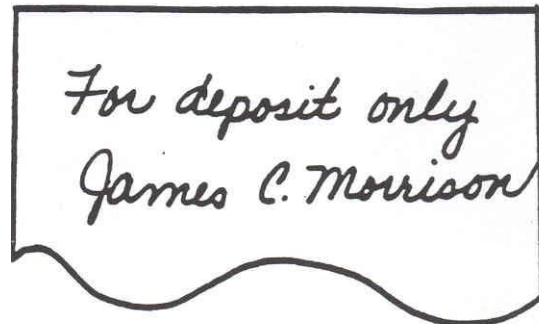 For deposit only
James C. Morrison